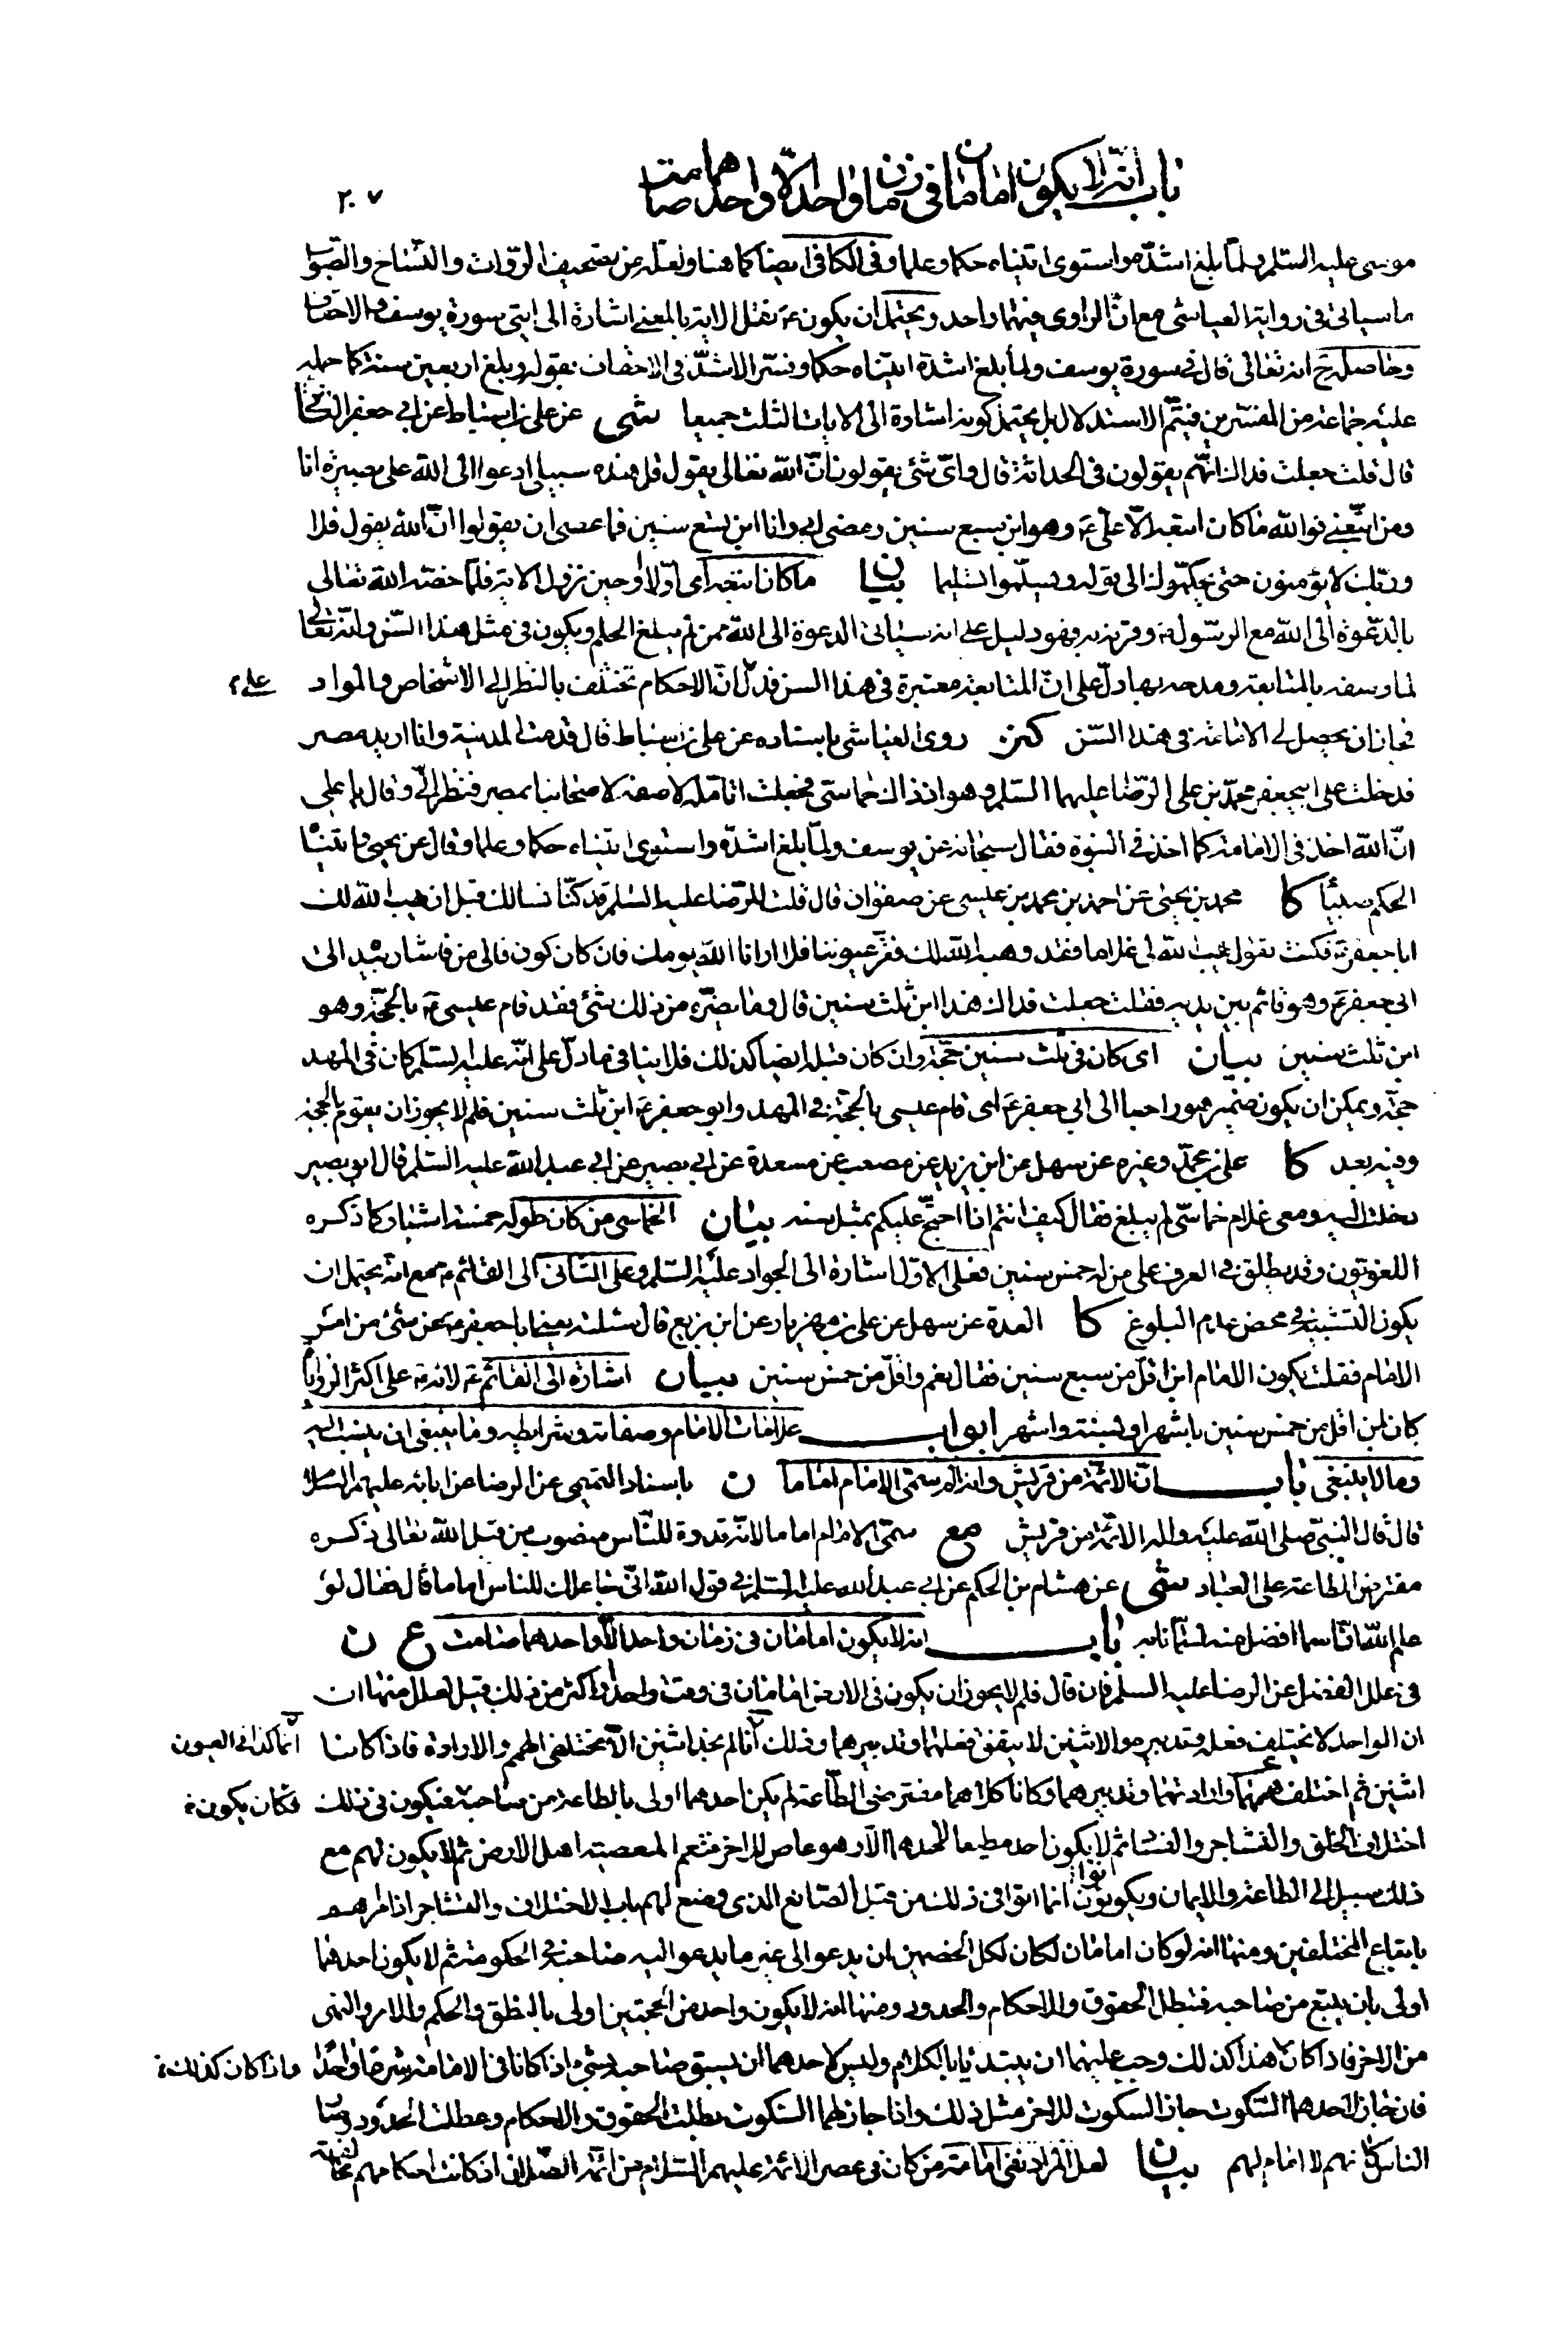 باب انه لا يكون امامان فى زمان واحد الا واحدهما صامت
٢٠٧
موسى عليه السلم ولما بلغ اشده واستوى اتيناه حكما وعلما وفى الكافى ايضا كما هنا ولعله من تصحيف الرواة والنساخ والصواب
ما سياتى فى رواية العياشى مع ان الراوى فيهما واحد ويحتمل ان يكون ع نقل الاية بالمعنى اشارة الى ايتى سورة يوسف والاحقاف
وحاصله ح انه تعالى قال فى سورة يوسف ولما بلغ اشده اتيناه حكما وفسر الاشد فى الاحقاف بقوله وبلغ اربعين سنة كما حمله
عليه جماعة من المفسرين فيتم الاستدلال بل يحتمل كونه اشارة الى الايات الثلث جميعا شى عن على بن اسباط عن ابى جعفر الثانى
قال قلت جعلت فداك انهم يقولون فى الحداثة قال واى شئ يقولون ان الله تعالى يقول قل هذه سبيلى ادعوا الى الله على بصيرة انا
ومن اتبعنى فوالله ما كان اتبعه الا على ع وهو ابن سبع سنين ومضى ابى وانا ابن تسع سنين فما عسى ان يقولوا ان الله يقول فلا
وربك لا يؤمنون حتى يحكموك الى قوله ويسلموا تسليما بيان ما كان اتبعه اى اولا او حين نزول الاية فلما خصه الله تعالى
بالدعوة الى الله مع الرسول ص وقرنه به فهو دليل على انه سياتى الدعوة الى الله ممن لم يبلغ الحلم ويكون فى مثل هذا السن وانه تعالى
لما وصفه بالمتابعة ومدحه بها دل على ان المتابعة معتبرة فى هذا السن فدل ان الاحكام تختلف بالنظر الى الاشخاص والمواد
على ؟
فجاز ان يحصل لى الامامة فى هذا السن كنز روى العياشى باسناده عن على بن اسباط قال قدمت المدينة وانا اريد مصر
فدخلت على ابى جعفر محمد بن على الرضا عليهما السلم وهو اذ ذاك خماسى فجعلت اتامله لاصفه لاصحابنا بمصر فنظر الى وقال يا على
ان الله اخذ فى الامامة كما اخذ فى النبوة فقال سبحانه عن يوسف ولما بلغ اشده واستوى اتيناه حكما وعلما وقال عن يحيى واتيناه
الحكم صبيا كا محمد بن يحيى عن احمد بن محمد بن عيسى عن صفوان قال قلت للرضا عليه السلم قد كنا نسالك قبل ان يهب الله لك
ابا جعفر ع فكنت تقول يهب الله لى غلاما فقد وهب الله لك فقر عيوننا فلا ارانا الله يومك فان كان كون فالى من فاشار بيده الى
ابى جعفر ع وهو قائم بين يديه فقلت جعلت فداك هذا ابن ثلث سنين قال وما يضره من ذلك شئ فقد قام عيسى ع بالحجة وهو
ابن ثلث سنين بيان اى كان فى ثلث سنين حجة وان كان قبله ايضا كذلك فلا ينافى ما دل على انه عليه السلم كان فى المهد
حجة ويمكن ان يكون ضمير هو راجعا الى ابى جعفر ع اى قام عيسى بالحجة فى المهد وابو جعفر ع ابن ثلث سنين فلم لا يجوز ان يقوم بالحجة
وفيه بعد كا على بن محمد وغيره عن سهل عن ابن يزيد عن مصعب عن مسعدة عن ابى بصير عن ابى عبد الله عليه السلم قال ابو بصير
دخلت اليه ومعى غلام خماسى لم يبلغ فقال كيف انتم اذا احتج عليكم بمثل سنه بيان الخماسى من كان طوله خمسة اشبار كما ذكره
اللغويون وقد يطلق فى العرف على من له خمس سنين فعلى الاول اشارة الى الجواد عليه السلم وعلى الثانى الى القائم ع مع انه يحتمل ان
يكون التشبيه فى محض عدم البلوغ كا العدة عن سهل عن على بن مهزيار عن ابن بزيع قال سئلته يعنى ابا جعفر ع عن شئ من امر
الامام فقلت يكون الامام ابن اقل من سبع سنين فقال نعم واقل من خمس سنين بيان اشارة الى القائم ع لانه ع على اكثر الروايات
كان ابن اقل من خمس سنين باشهر او بسنة واشهر ابواب علامات الامام وصفاته وشرايطه وما ينبغى ان ينسب اليه
وما لا ينبغى باب ان الائمة من قريش وانه لم سمى الامام اماما ن باسناد التميمى عن الرضا عن ابائه عليهم السلم
قال قال النبى صلى الله عليه واله الائمة من قريش مع سمى الامام اماما لانه قدوة للناس منصوب من قبل الله تعالى ذكره
مفترض الطاعة على العباد شى عن هشام بن الحكم عن ابى عبد الله عليه السلم فى قول الله انى جاعلك للناس اماما قال فقال لو
علم الله ان اسما افضل منه لسمانا به باب انه لا يكون امامان فى زمان واحد الا واحدهما صامت ع ن
فى علل الفضل عن الرضا عليه السلم فان قال فلم لا يجوز ان يكون فى الارض امامان فى وقت واحد او اكثر من ذلك قيل لعلل منها ان
ان الواحد لا يختلف فعله وتدبيره والاثنين لا يتفق فعلهما وتدبيرهما وذلك انا لم نجد اثنين الا مختلفى الهمم والارادة فاذا كانا
انما كذا فى العيون
اثنين ثم اختلف هممهما وارادتهما وتدبيرهما وكانا كلاهما مفترضى الطاعة لم يكن احدهما اولى بالطاعة من صاحبه فيكون فى ذلك
فكان يكون
اختلاف الخلق والتشاجر والفساد ثم لا يكون احد مطيعا لاحدهما الا وهو عاص للاخر فتعم المعصية اهل الارض ثم لا يكون لهم مع
ذلك سبيل الى الطاعة والايمان ويكونون انما اتوا فى ذلك من قبل الصانع الذى وضع لهم باب الاختلاف والتشاجر اذ امرهم
باتباع المختلفين ومنها انه لو كان امامان لكان لكل الخصمين ان يدعو الى غير ما يدعو اليه صاحبه فى الحكومة ثم لا يكون احدهما
اولى بان يتبع من صاحبه فتبطل الحقوق والاحكام والحدود ومنها انه لا يكون واحد من الحجتين اولى بالنطق والحكم والامر والنهى
من الاخر فاذا كان هذا كذلك وجب عليهما ان يبتديا بالكلام وليس لاحدهما ان يسبق صاحبه بشئ اذا كانا فى الامامة شرعا واحدا
واذا كان كذلك
فان جاز لاحدهما السكوت جاز السكوت للاخر مثل ذلك واذا جاز لهما السكوت بطلت الحقوق والاحكام وعطلت الحدود وصار
الناس كانهم لا امام لهم بيان لعل المراد نفى امامة من كان فى عصر الائمة عليهم السلام من ائمة الضلال اذ كانت احكامهم مخالفة